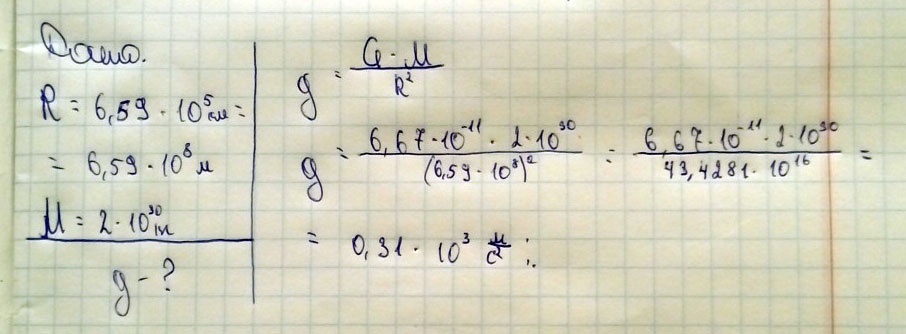 Дано.
R = 6,59 · 10⁵ км =
= 6,59 · 10⁸ м
M = 2 · 10³⁰ кг
g - ?
g = G · M / R²
g = 6,67 · 10⁻¹¹ · 2 · 10³⁰ / (6,59 · 10⁸)² = 6,67 · 10⁻¹¹ · 2 · 10³⁰ / 43,4281 · 10¹⁶ =
= 0,31 · 10³ м/с² ;.